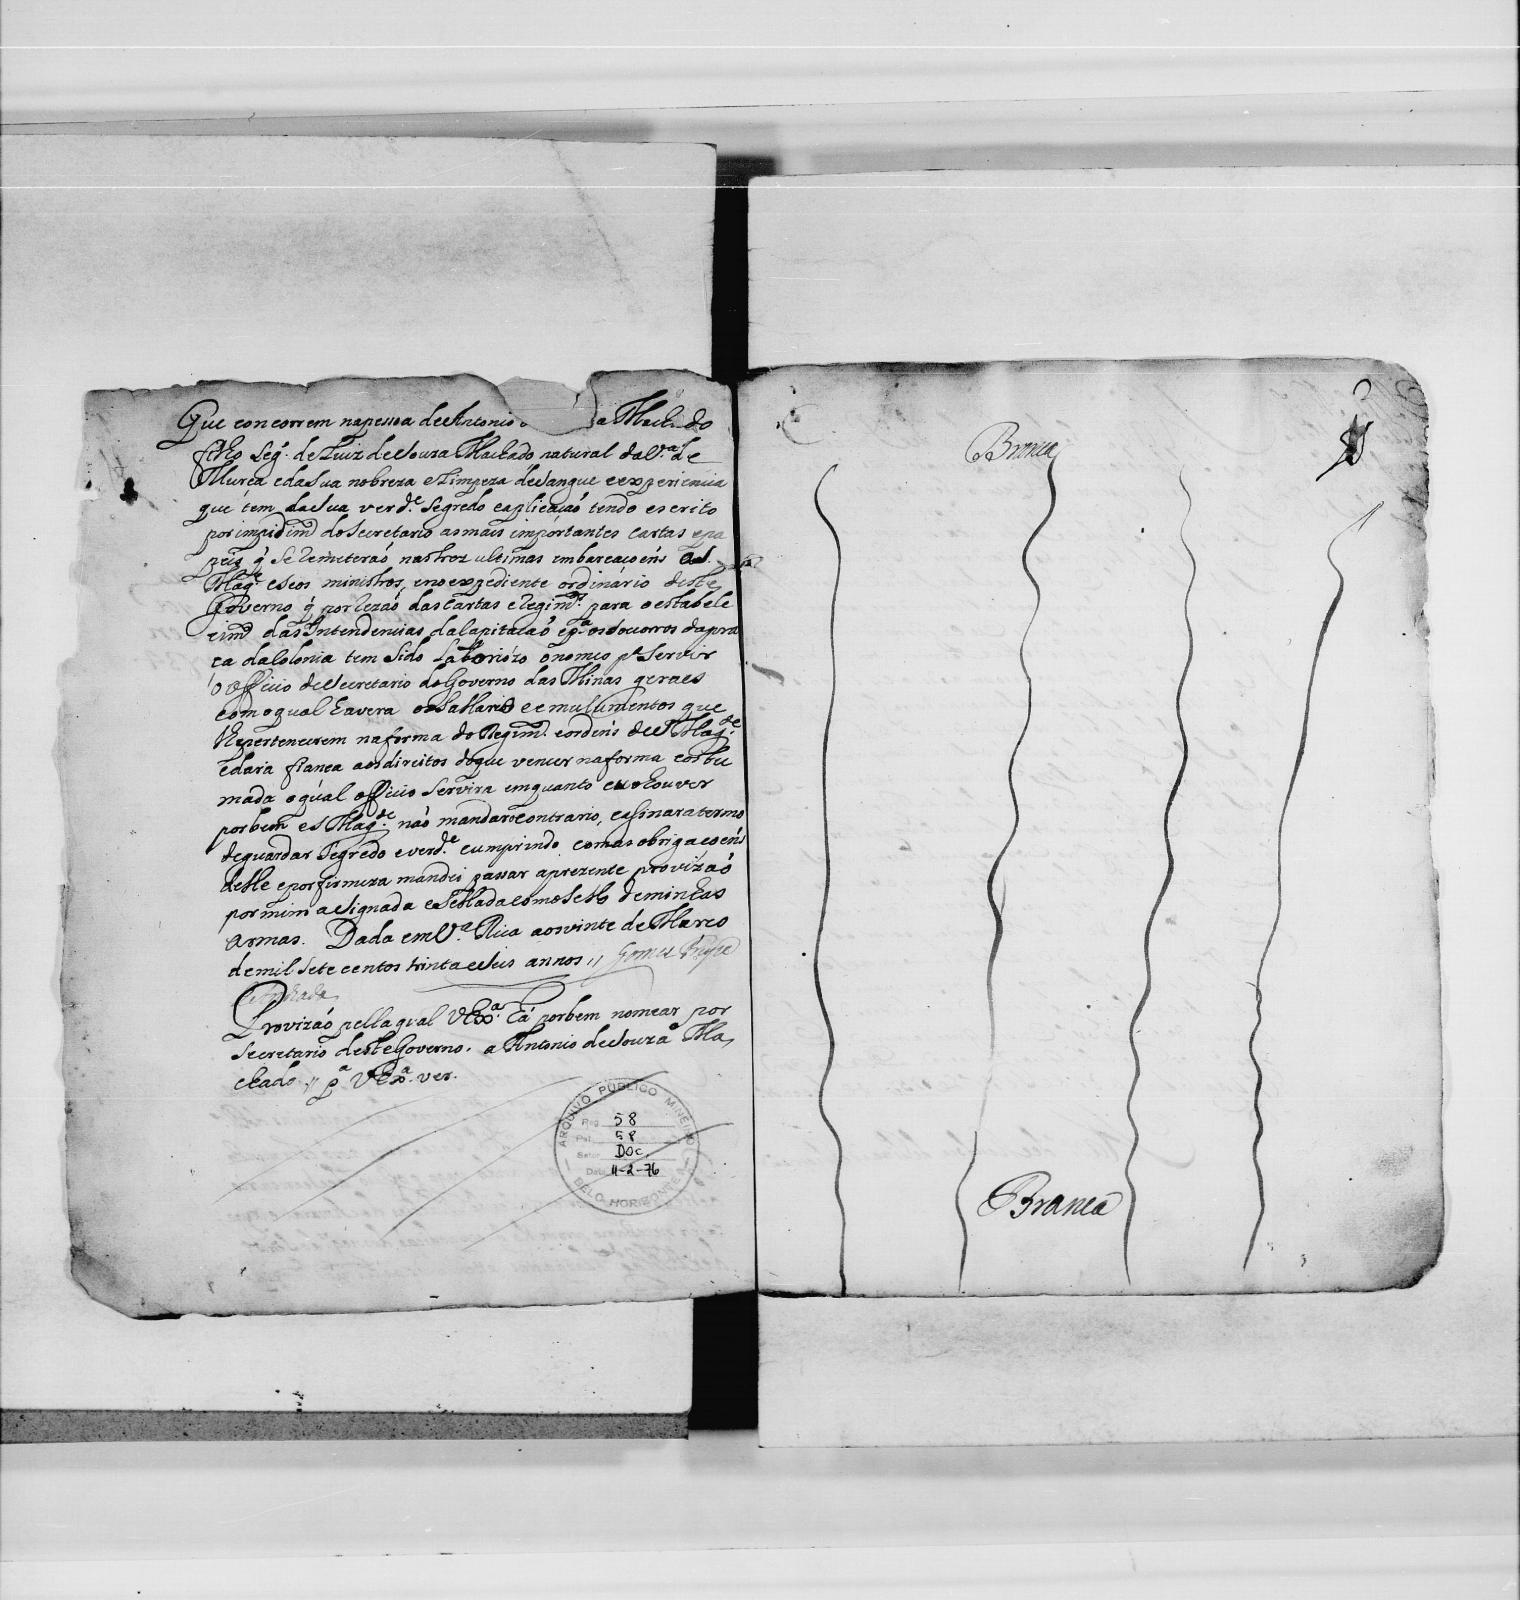 Que concorrem na pessoa de Antonio a Machado
filho leg. de Luiz de Souza Machado natural da V.ª de
Murca e da Sua nobreza e limpeza de Sangue e experiencia
que tem da Sua verd.e Segredo e aplicacaó tendo escrito
por impidim.to do Secretario as mais importantes cartas e pa
peis q̃ Se remeteraó nas trez ultimas embarcacoéns a S.
Mag.e e Seos ministros, e no expediente ordinário deste
Governo q̃ por rezaó das cartas e regim.tos para o estabele
cim.to das Intendencias da Capitacaó e p.ª os Socorros da pra
ca da Colonia tem Sido laboriózo o nomeo p.ª Servir
o officio de Secretario do Governo das Minas geraes
com o qual havera o Sallario e emulumentos que
lhe pertencerem na forma do Regim.to e ordéns de S Mag.de
e dara fianca aos direitos do que vencer na forma costu
mada o qual officio Servira emquanto eu o houver
por bem e S Mag.de naó mandar o contrario, e asinara termo
de guardar Segredo e verd.e cumprindo com as obrigacoéns
delle e por firmeza mandei passar a prezente provizaó
por mim aSignada e Sellada com o Sello de minhas
armas. Dada em V.ª Rica aos vinte de Marco
de mil Sete centos trinta e Seis annos // Gomes Freyre
de Andrada
Provizaó pella qual V Ex.ª há por bem nomear por
Secretario deste Governo. a Antonio de Souza Ma
chado // p.ª V Ex.ª ver.
ARQUIVO PUBLICO MINEIRO
Reg. 58
Pat. 58
Setor DOC.
Data 11-2-76
BELO HORIZONTE
Branca
Branca